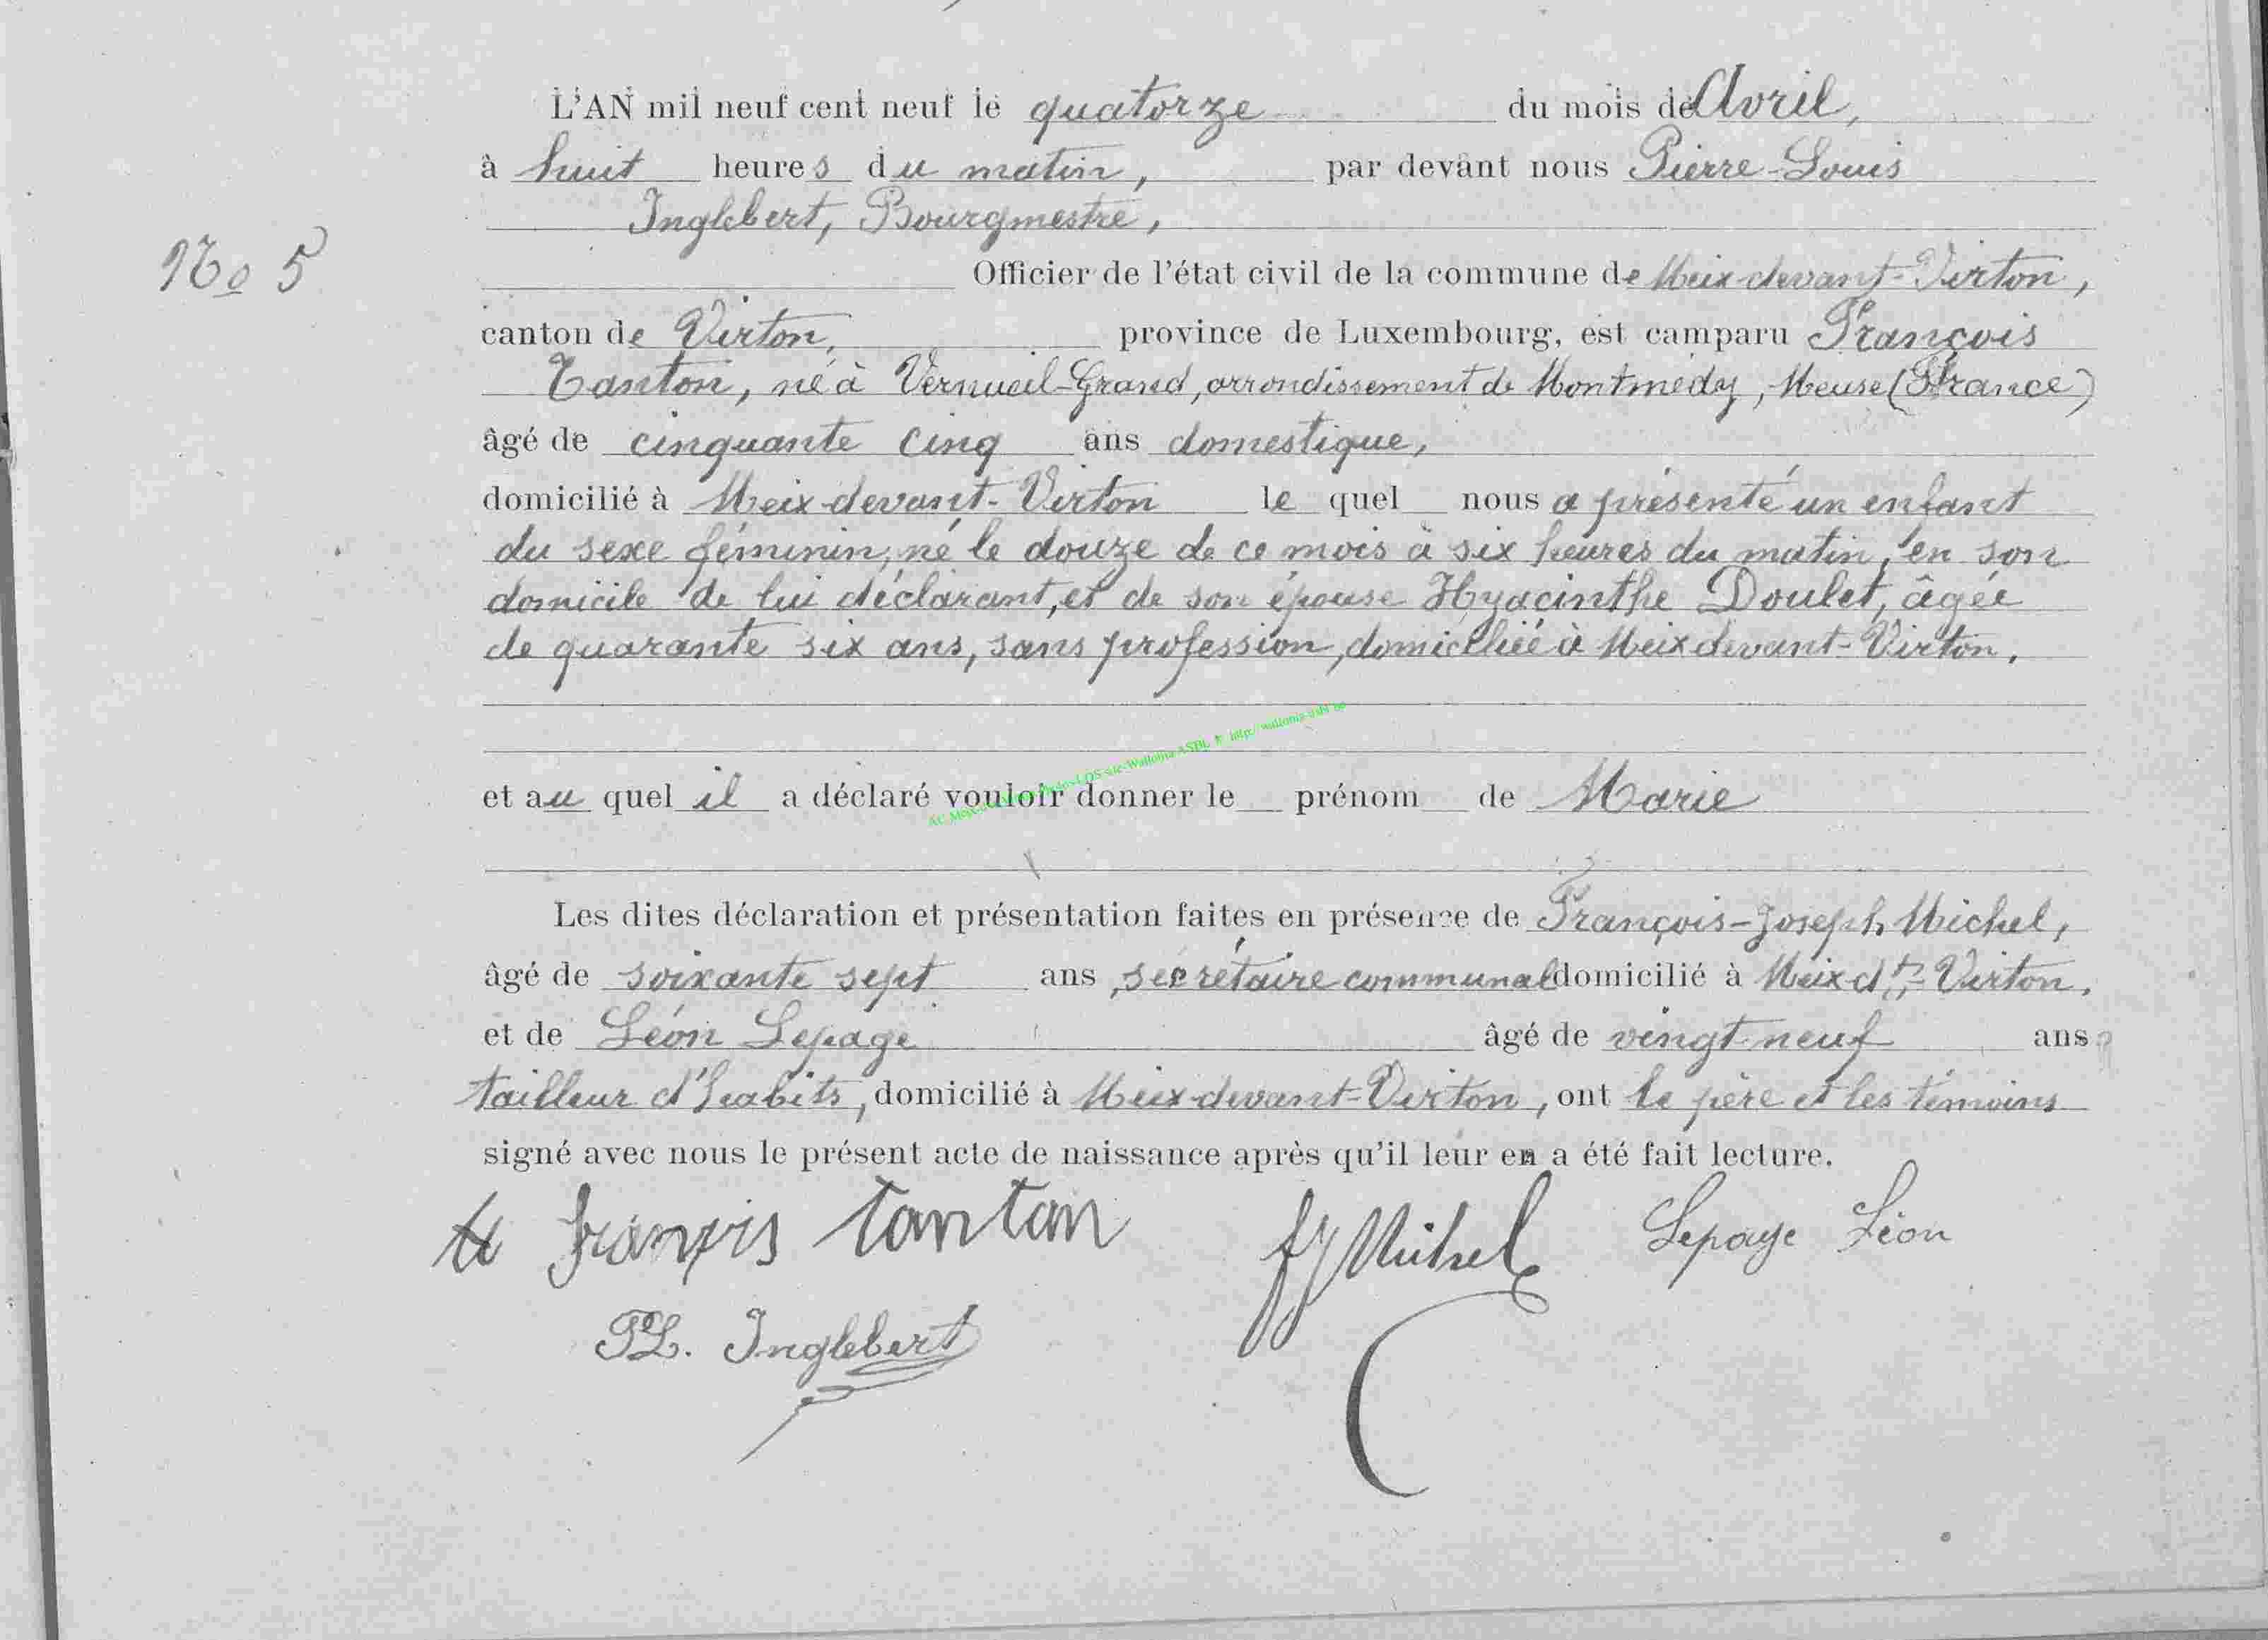 L'AN mil neuf cent neuf le quatorze du mois de Avril,
à huit heures du matin, par devant nous Pierre-Louis
Inglebert, Bourgmestre,
No 5
Officier de l'état civil de la commune de Meix-devant-Virton,
canton de Virton, province de Luxembourg, est camparu François
Tanton, né à Verneuil-Grand, arrondissement de Montmédy, Meuse (France)
âgé de cinquante cinq ans domestique,
domicilié à Meix-devant-Virton le quel nous a présenté un enfant
du sexe féminin, né le douze de ce mois à six heures du matin, en son
domicile de lui déclarant, et de son épouse Hyacinthe Doulet, âgée
de quarante six ans, sans profession, domiciliée à Meix devant-Virton.
et au quel il a déclaré vouloir donner le prénom de Marie
Les dites déclaration et présentation faites en présence de François-Joseph Michel,
âgé de soixante sept ans, secrétaire communal domicilié à Meix-dt-Virton.
et de Léon Lepage âgé de vingt-neuf ans
tailleur d'habits, domicilié à Meix-devant-Virton, ont le père et les témoins
signé avec nous le présent acte de naissance après qu'il leur en a été fait lecture.
françois tantan fJ Michel Lepage Léon
PL. Inglebert